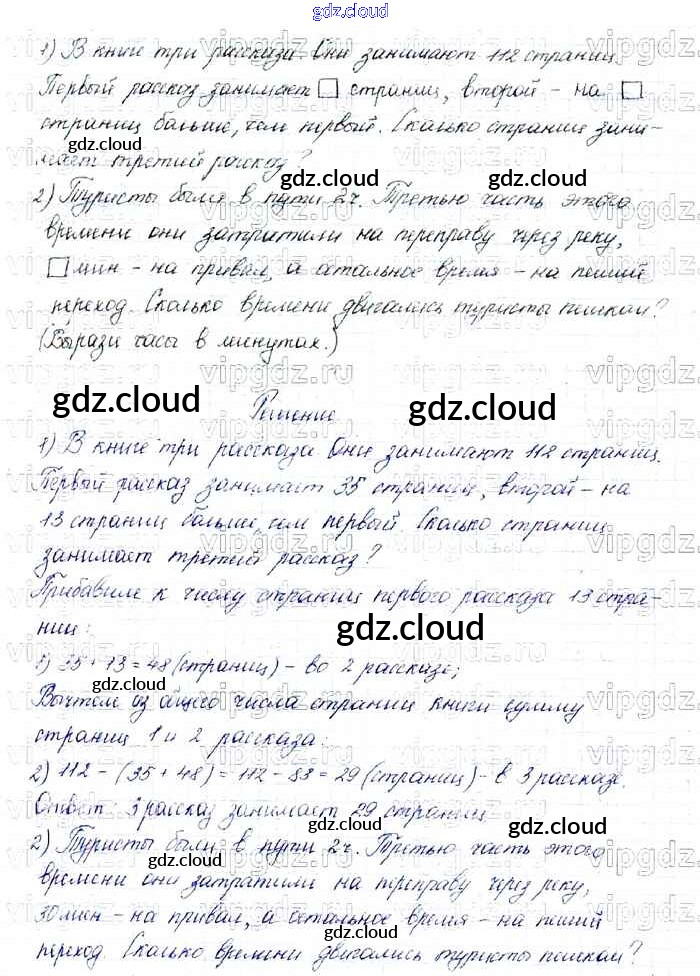 gdz.cloud
1) В книге три рассказа. Они занимают 112 страниц.
Первый рассказ занимает □ страниц, второй – на □
страниц больше, чем первый. Сколько страниц зани-
мает третий рассказ?
gdz.cloud gdz.cloud
2) Туристы были в пути 2ч. Третью часть этого
времени они затратили на переправу через реку,
□ мин – на привал, а остальное время – на пеший
переход. Сколько времени двигались туристы пешком?
(Вырази часы в минутах.)
gdz.cloud gdz.cloud
Решение
1) В книге три рассказа. Они занимают 112 страниц.
Первый рассказ занимает 35 страниц, второй – на
13 страниц больше, чем первый. Сколько страниц
занимает третий рассказ?
Прибавим к числу страниц первого рассказа 13 стра-
ниц:
gdz.cloud
1) 35 + 13 = 48 (страниц) – во 2 рассказе;
gdz.cloud
Вычтем из общего числа страниц книги сумму
страниц 1 и 2 рассказа:
2) 112 – (35 + 48) = 112 – 83 = 29 (страниц) – в 3 рассказе.
Ответ: 3 рассказ занимает 29 страниц.
gdz.cloud gdz.cloud
2) Туристы были в пути 2ч. Третью часть этого
gdz.cloud
времени они затратили на переправу через реку,
30 мин – на привал, а остальное время – на пеший
gdz.cloud
переход. Сколько времени двигались туристы пешком?
gdz.cloud